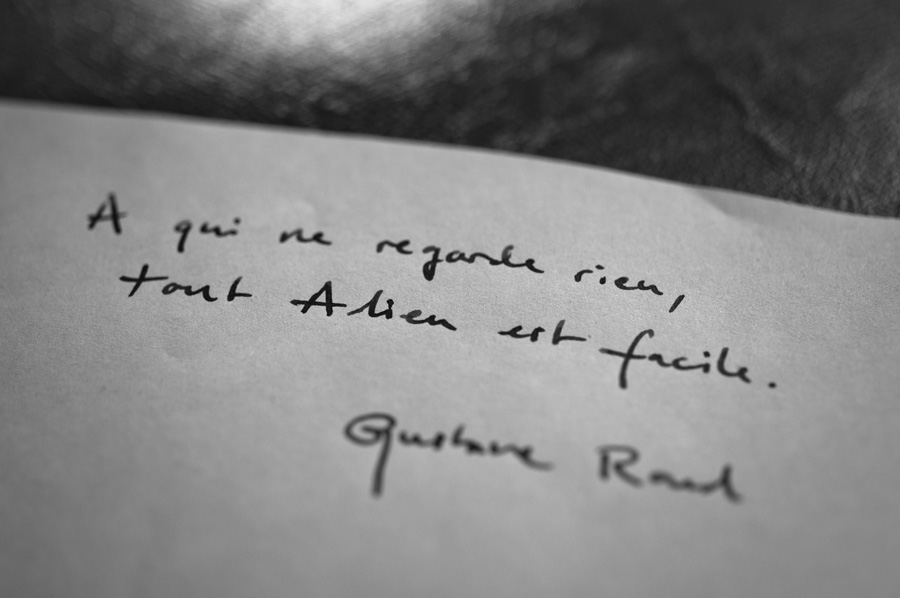 A qui ne regarde rien,
tout Alien est facile.
Gustave Roud